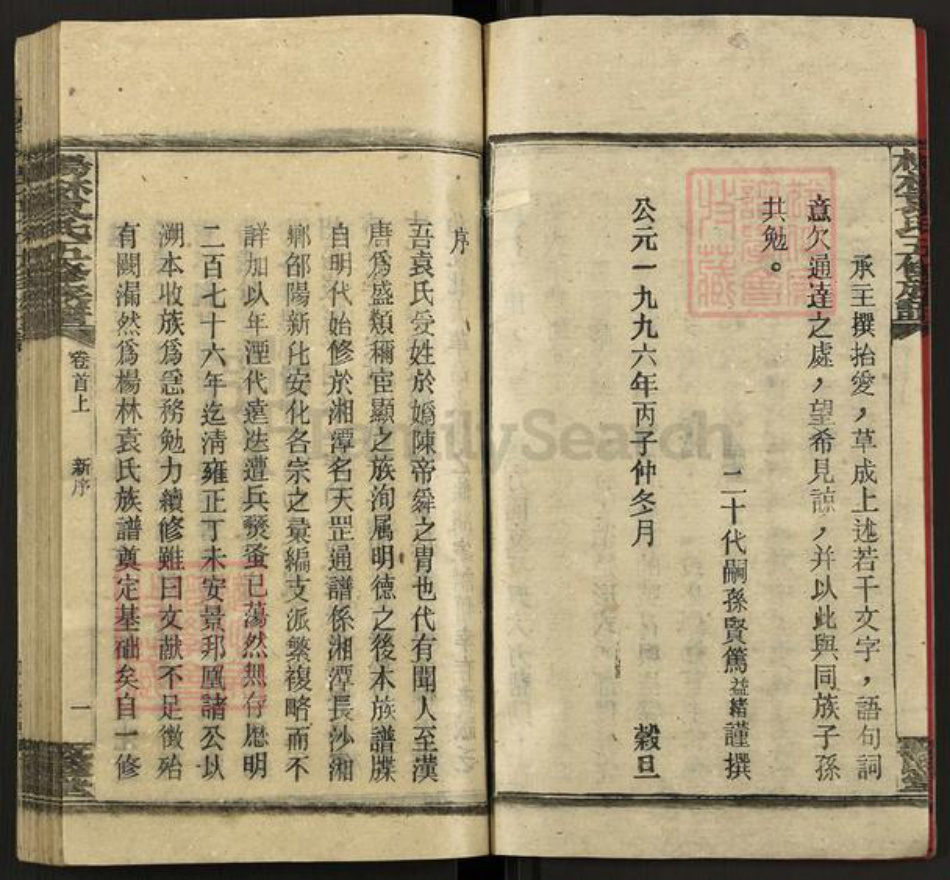 承主撰抬愛，草成上述若干文字，語句詞
意欠通達之處，望希見諒，并以此與同族子孫
共勉。
二十代嗣孫賢篤益緒謹撰
公元一九九六年丙子仲冬月 穀旦
序
吾袁氏受姓於媯陳帝舜之胄也代有聞人至漢
唐爲盛類稱宦顯之族洵属明德之後木族譜牒
自明代始修於湘潭名天罡通譜係湘潭長沙湘
鄉邵陽新化安化各宗之彙編支派繁複略而不
詳加以年湮代遠迭遭兵燹蚤已蕩然無存歷明
二百七十六年迄清雍正丁未安景邦凰諸公以
溯本收族爲急務勉力續修雖曰文献不足徴殆
有闕漏然爲楊林袁氏族譜奠定基础矣自一修
卷首上 新序 一
FamilySearch